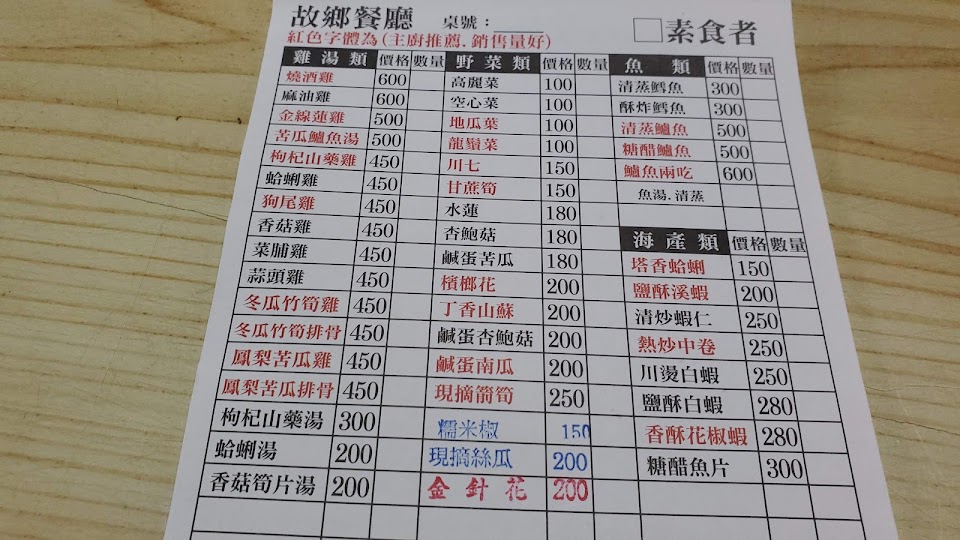 故鄉餐廳 桌號：
□素食者
紅色字體為(主廚推薦.銷售量好)
雞湯類 價格 數量
燒酒雞 600
麻油雞 600
金線蓮雞 500
苦瓜鱸魚湯 500
枸杞山藥雞 450
蛤蜊雞 450
狗尾雞 450
香菇雞 450
菜脯雞 450
蒜頭雞 450
冬瓜竹筍雞 450
冬瓜竹筍排骨 450
鳳梨苦瓜雞 450
鳳梨苦瓜排骨 450
枸杞山藥湯 300
蛤蜊湯 200
香菇筍片湯 200
野菜類 價格 數量
高麗菜 100
空心菜 100
地瓜葉 100
龍鬚菜 100
川七 150
甘蔗筍 150
水蓮 180
杏鮑菇 180
鹹蛋苦瓜 180
檳榔花 200
丁香山蘇 200
鹹蛋杏鮑菇 200
鹹蛋南瓜 200
現摘箭筍 250
糯米椒 150
現摘絲瓜 200
金針花 200
魚類 價格 數量
清蒸鱈魚 300
酥炸鱈魚 300
清蒸鱸魚 500
糖醋鱸魚 500
鱸魚兩吃 600
魚湯.清蒸
海產類 價格 數量
塔香蛤蜊 150
鹽酥溪蝦 200
清炒蝦仁 250
熱炒中卷 250
川燙白蝦 250
鹽酥白蝦 280
香酥花椒蝦 280
糖醋魚片 300